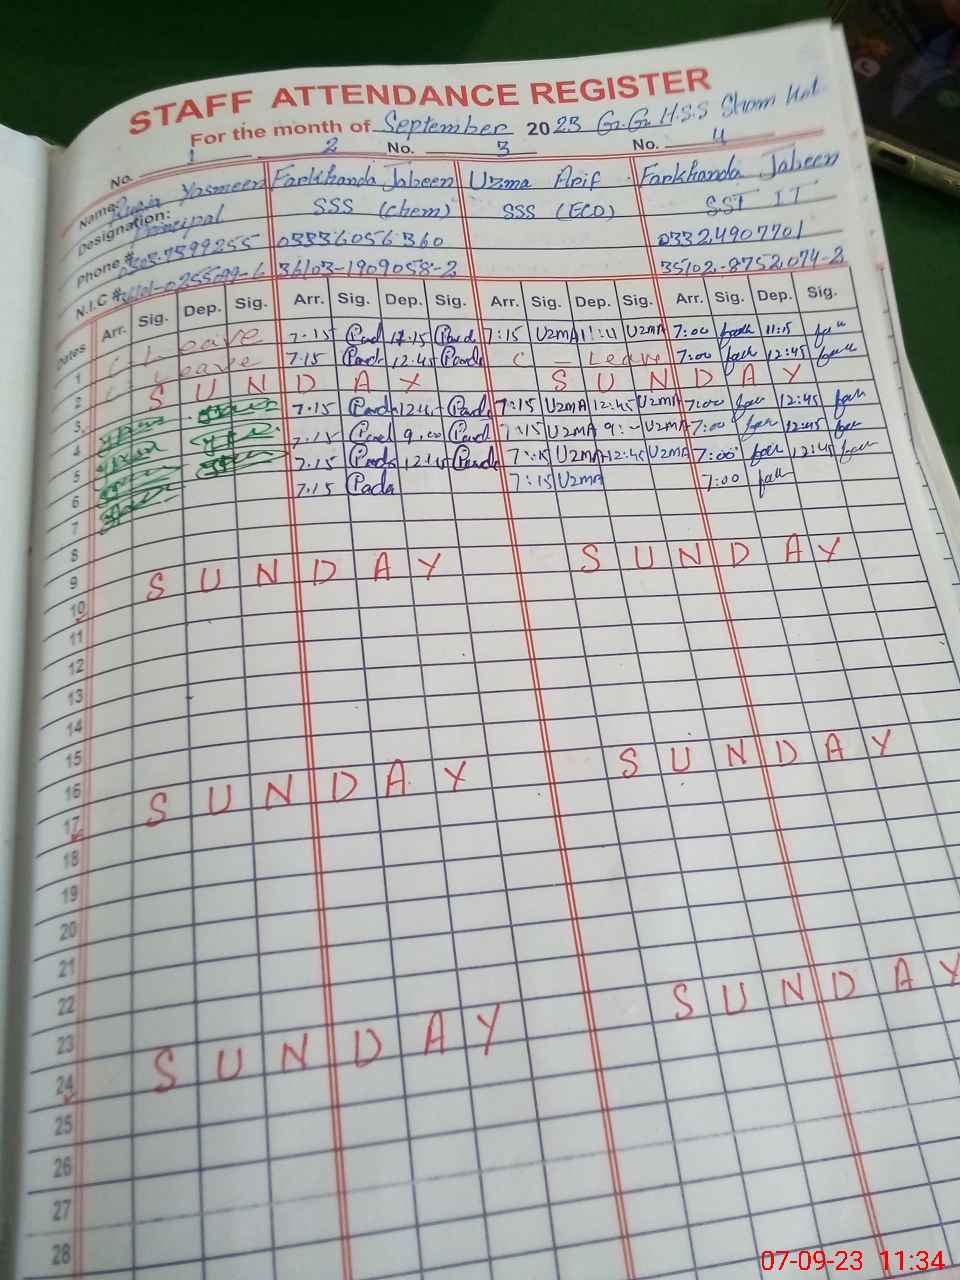 STAFF ATTENDANCE REGISTER
For the month of September 2023 G.G.H.S.S Sham Kot
No. 1 2 No. 3 No. 4
Name: Yasmeen Farkhanda Jabeen Uzma Arif Farkhanda Jabeen
Designation: Principal SSS (Chem) SSS (ECO) SST IT
Phone # 0303-7399255 03336056360 03324907701
N.I.C # 36103-1909058-2 35102-8752074-2
Dates Arr. Sig. Dep. Sig. Arr. Sig. Dep. Sig. Arr. Sig. Dep. Sig. Arr. Sig. Dep. Sig.
1 Leave 7.15 11:15 7:15 UzmA 11:11 UzmA 7:00 11:15
2 Leave 7.15 12:45 C - Leave 7:00 12:45
3 SUNDAY SUNDAY
4 7.15 7:15 UzmA 12:45 UzmA 7:00 12:45
5 7.15 9.00 7:15 UzmA 9:- UzmA 7:00 12:45
6 7.15 12:45 7:15 UzmA 12:45 UzmA 7:00 12:45
7 7.15 7:15 UzmA 7:00
8
9
10 SUNDAY SUNDAY
11
12
13
14
15
16
17 SUNDAY SUNDAY
18
19
20
21
22
23
24 SUNDAY SUNDAY
25
26
27
28
07-09-23 11:34